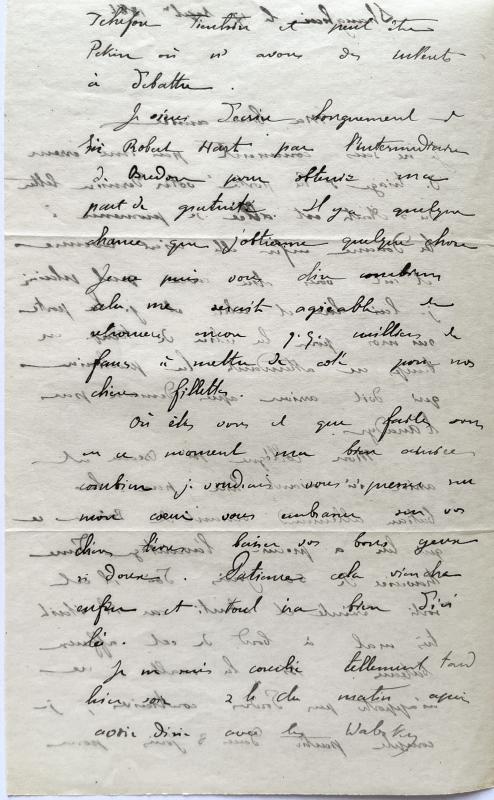 Tchefou Tientsin et peut être
Pekin où n avons des intérets
à débattre.
Je viens d'écrire longuement à
Sir Robert Hart par l'intermédiaire
de Bredon pour obtenir ma
part de gratuité il y a quelque
chance que j'obtienne quelque chose
Je ne puis vous dire combien
cela me serait agréable de
retrouver encore q.q. milliers de
francs à mettre de coté pour nos
chères fillettes.
Où êtes vous et que faites vous
en ce moment ma bien aimée
combien je voudrais vous presser sur
mon coeur vous embrasser sur vos
chères lèvres baiser vos bons yeux
si doux. Patience cela viendra
enfin et tout ira bien d'ici
là.
Je me suis couché tellement tard
hier soir 2 h du matin après
avoir diné avec les